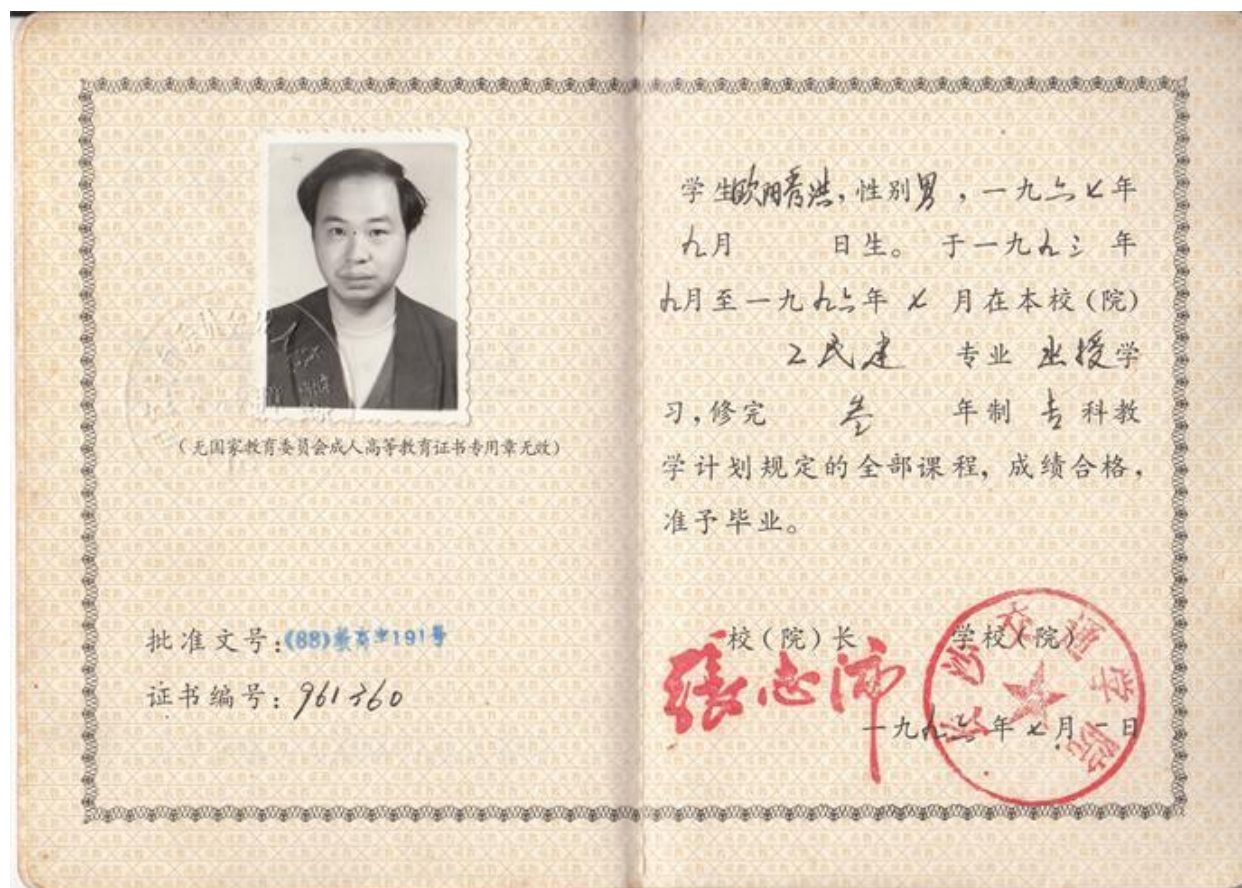 (无国家教育委员会成人高等教育证书专用章无效)
批准文号:(88)教高字191号
证书编号:961360
学生欧阳秀洪,性别男,一九六七年
九月 日生。于一九九三年
九月至一九九六年七月在本校(院)
工民建 专业 函授学
习,修完 叁 年制 专科教
学计划规定的全部课程,成绩合格,
准予毕业。
校(院)长 学校(院)
张志沛
长沙交通学院
一九九六年七月一日